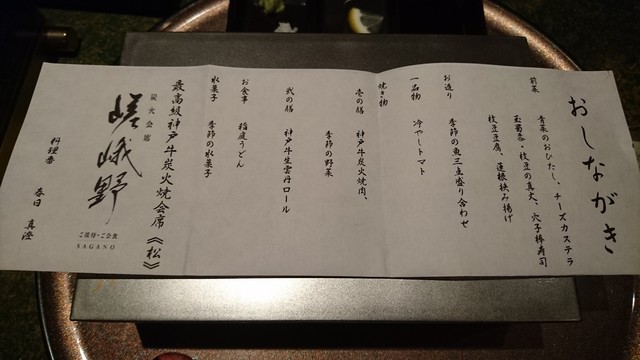 おしながき
前菜 青菜のおひたし、チーズカステラ
玉蜀黍・枝豆の真丈、穴子棒寿司
枝豆豆腐、蓮根挟み揚げ
お造り 季節の魚三点盛り合わせ
一品物 冷やしトマト
焼き物
壱の膳 神戸牛炭火焼肉、
季節の野菜
弐の膳 神戸牛生雲丹ロール
お食事 稲庭うどん
水菓子 季節の水菓子
最高級神戸牛炭火焼会席《松》
炭火会席
嵯峨野
ご接待・ご会食
SAGANO
料理番 春日 真澄